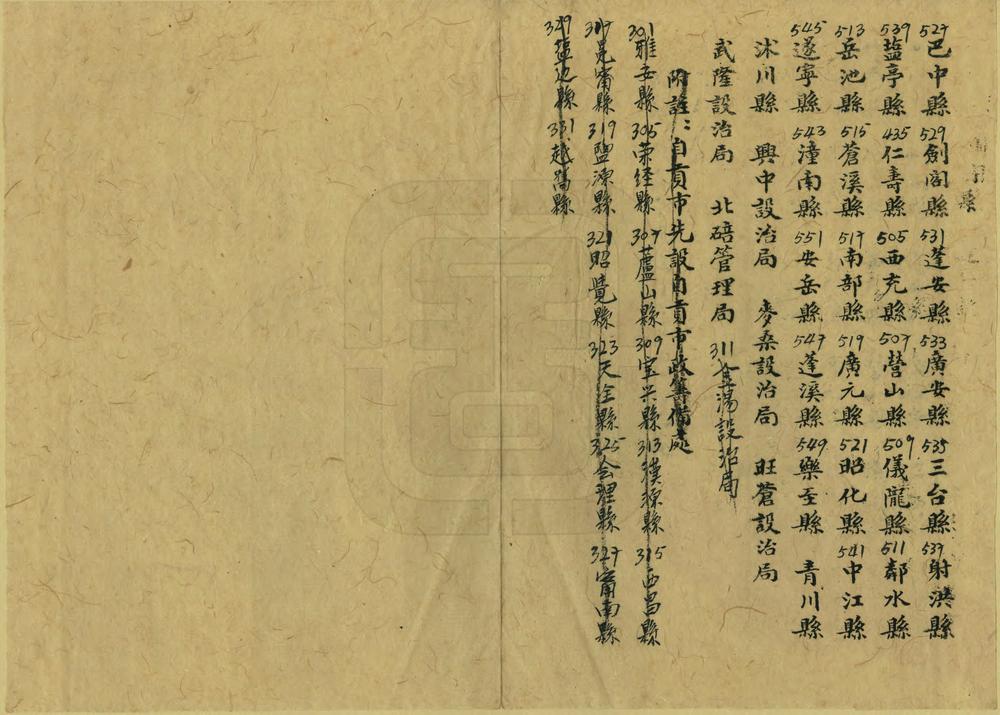 527巴中縣 529劍閣縣 531蓬安縣 533廣安縣 535三台縣 537射洪縣
539盐亭縣 435仁壽縣 505西充縣 507營山縣 509儀隴縣 511鄰水縣
513岳池縣 515蒼溪縣 517南部縣 519廣元縣 521昭化縣 541中江縣
545遂寧縣 543潼南縣 551安岳縣 547蓬溪縣 549樂至縣 青川縣
沐川縣 興中設治局 麥桑設治局 旺蒼設治局
武隆設治局 北碚管理局 311金湯設治局
附註：自貢市先設自貢市政籌備處
301雅安縣 305荣经縣 307蘆山縣 309宝兴縣 313漢源縣 315西昌縣
317冕甯縣 319盬源縣 321昭覺縣 323天全縣 325会理縣 327甯南縣
329盐边縣 331越嶲縣